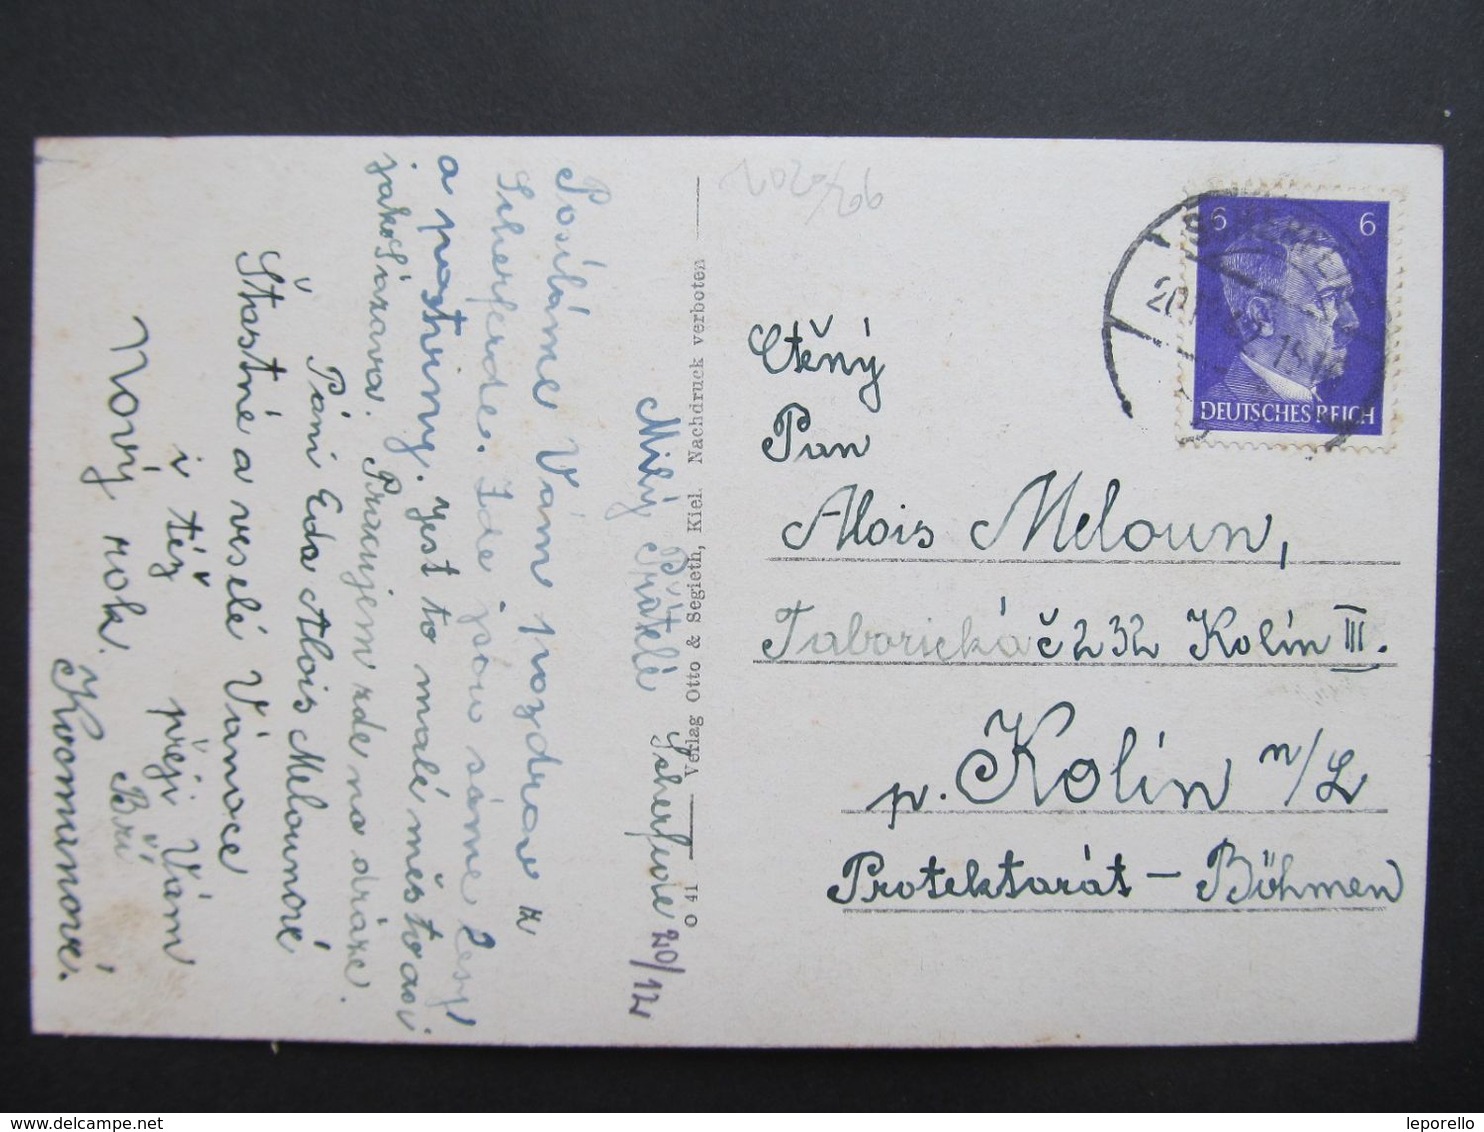 Scherfede 20/12
Milý Přátelé
Posíláme Vám pozdrav z
Scherferde. Zde jsou sáme Lesy
a pastviny. Jest to malé město asi
jako Sázava. Pracujem zde na dráze.
Páni Eda Alois Melounové
Štastné a veselé Vánoce
i též přeji Vám
Nový rok. Bří
Kvomunové.
O 41
Verlag Otto & Segieth, Kiel. Nachdruck verboten
6 6
DEUTSCHES REICH
Ctěný
Pan
Alois Meloun,
Taborická č 232 Kolín III.
p. Kolín n/L
Protektarát - Böhmen
leporello